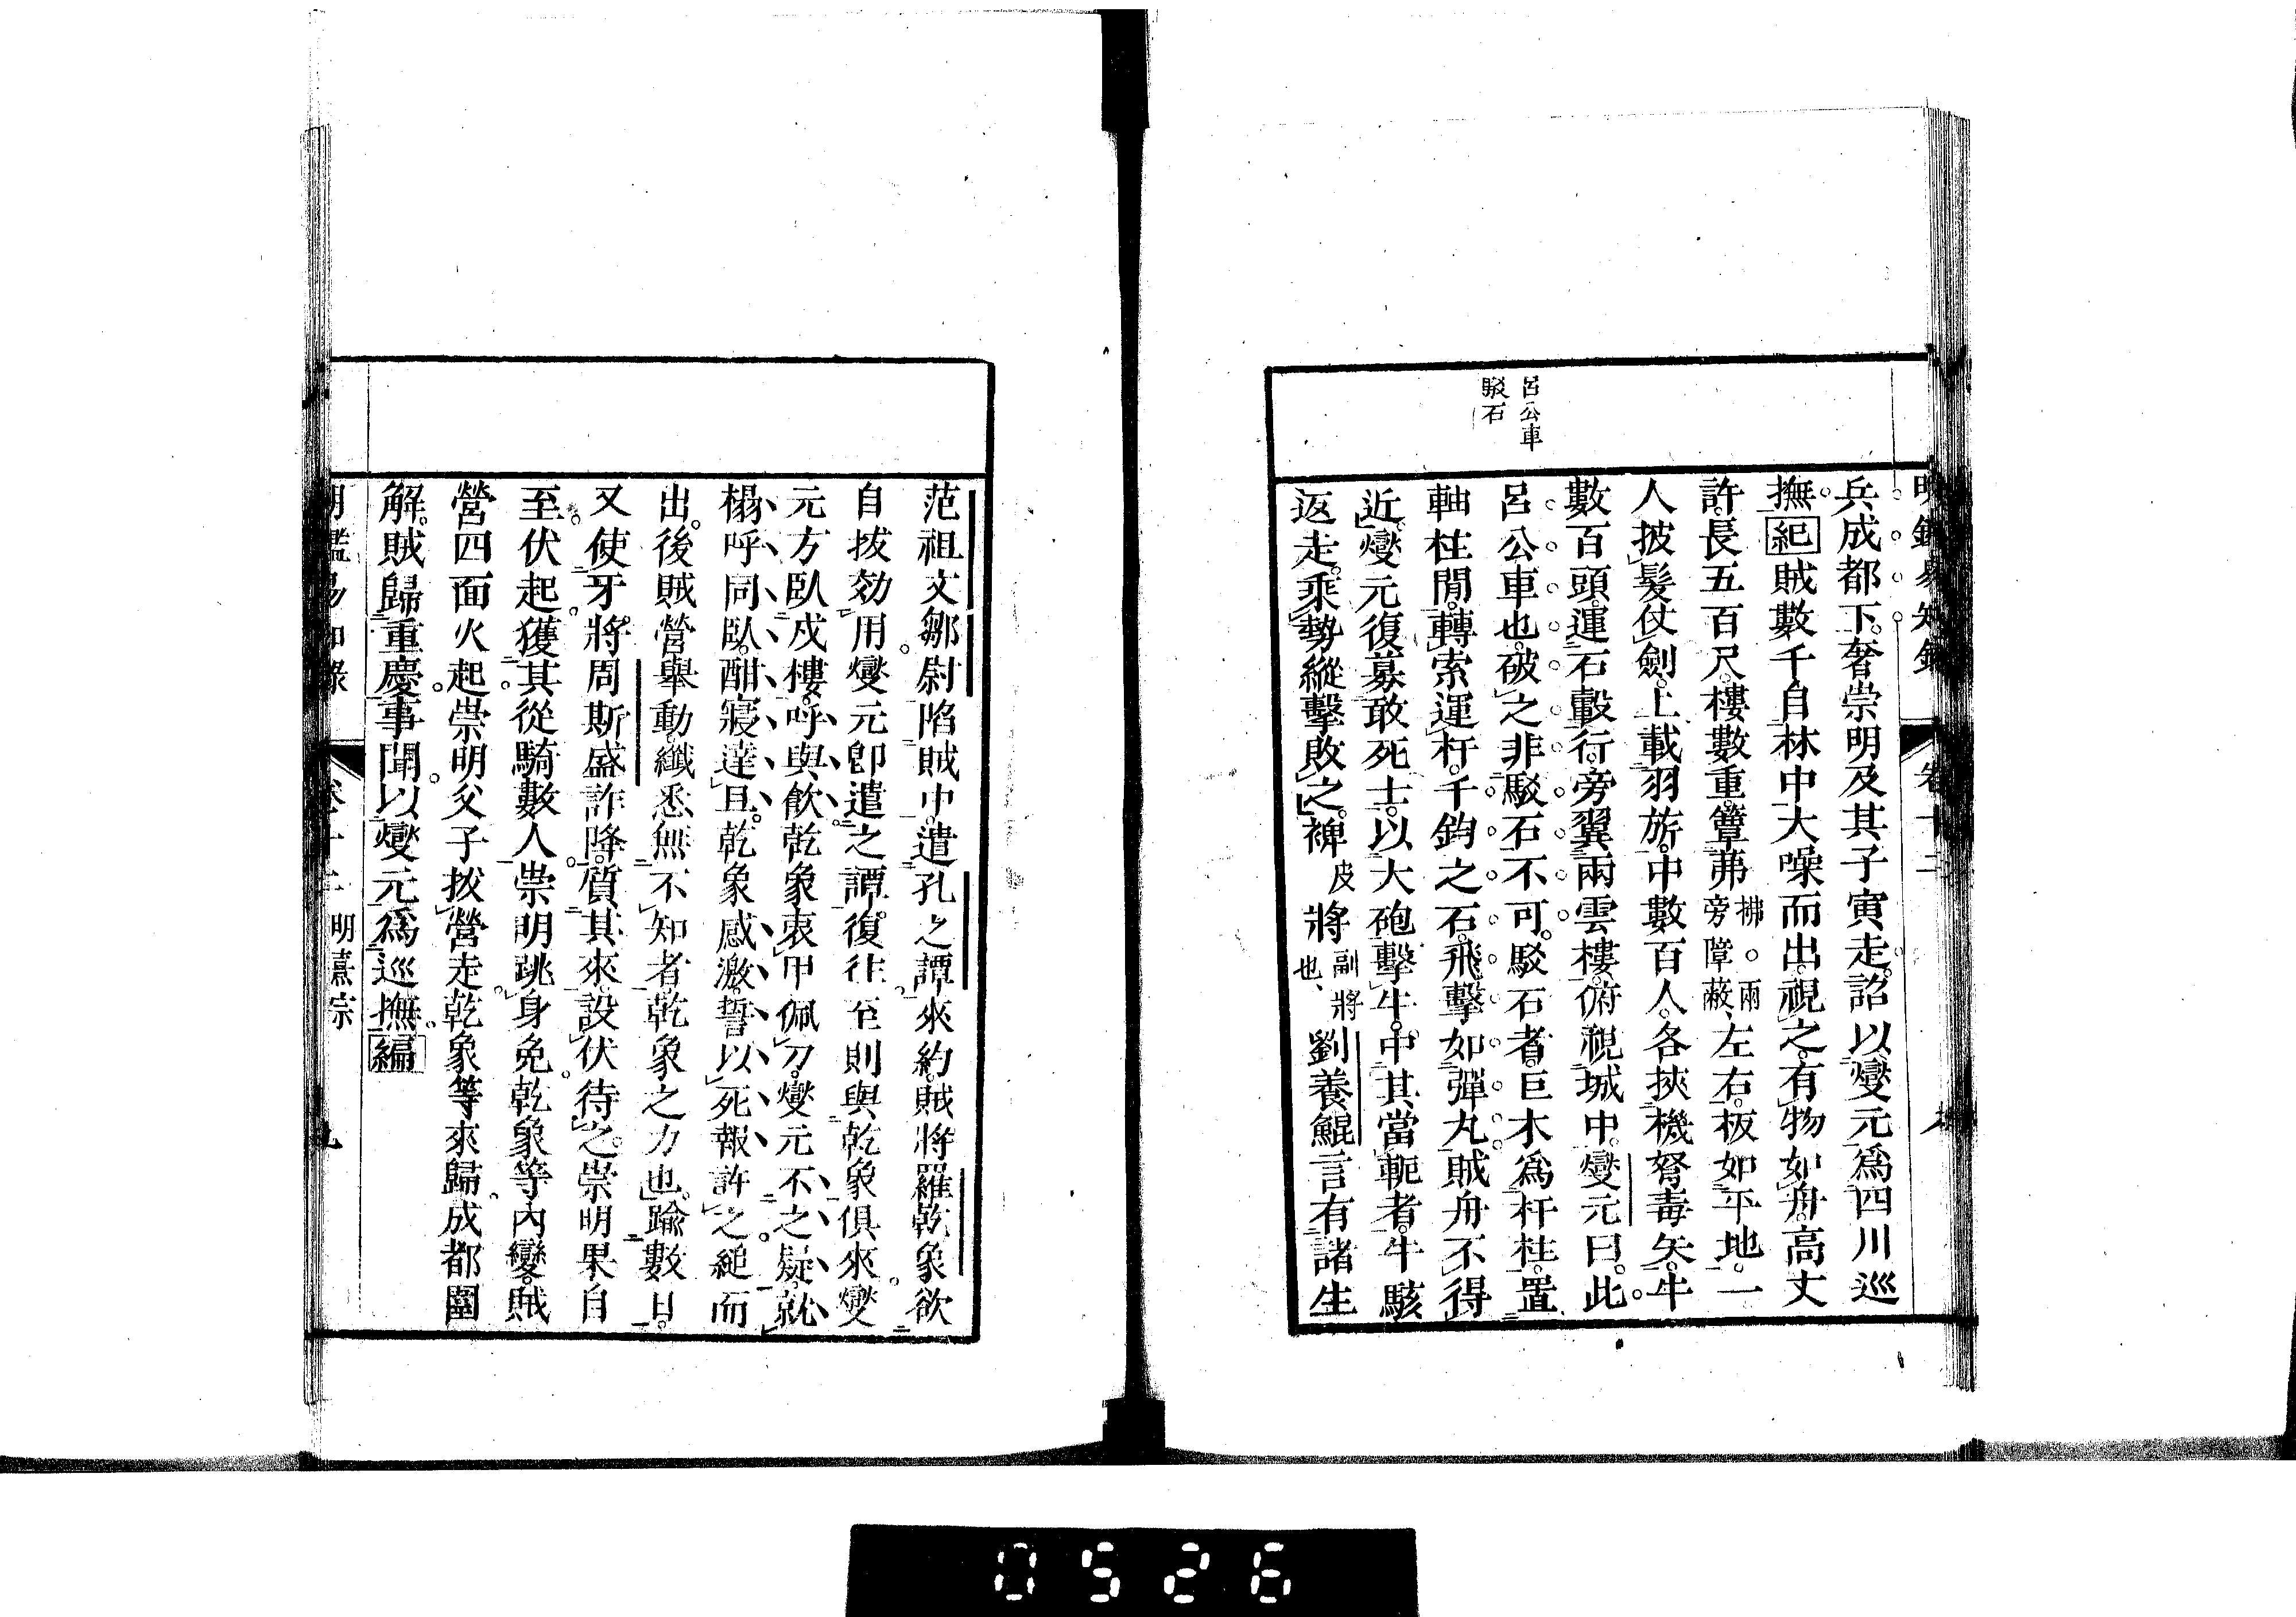 呂公車
駁石
兵成都下。奢崇明及其子寅走。詔以燮元爲四川巡
撫。紀賊數千自林中大噪而出。視之。有物如舟。高丈
許。長五百尺。樓數重。簟茀拂。兩旁障蔽、左右。板如平地。一
人披髮仗劍。上載羽旂。中數百人。各挾機弩毒矢。牛
數百頭。運石轂行。旁翼兩雲樓。俯視城中。燮元曰。此
呂公車也。破之非駁石不可。駁石者。巨木爲杆柱。置
軸柱閒。轉索運杆。千鈞之石。飛擊如彈丸。賊舟不得
近。燮元復募敢死士。以大砲擊牛。中其當軛者。牛駭
返走。乘勢縱擊敗之。裨皮將副將也、劉養鯤言有諸生
范祖文鄒尉陷賊中。遣孔之譚來約。賊將羅乾象欲
自拔効用。燮元卽遣之譚。復往至則與乾象俱來。燮
元方臥戍樓。呼與飮。乾象衷甲佩刀。燮元不之疑。就
榻呼同臥。酣寢達旦。乾象感激。誓以死報許之。縋而
出。後賊營舉動。纖悉無不知者。乾象之力也。踰數日。
又使牙將周斯盛詐降。質其來。設伏待之。崇明果自
至。伏起。獲其從騎數人。崇明跳身免。乾象等內變。賊
營四面火起。崇明父子拔營走。乾象等來歸。成都圍
解。賊歸重慶。事聞。以燮元爲巡撫。編
明熹宗
0526